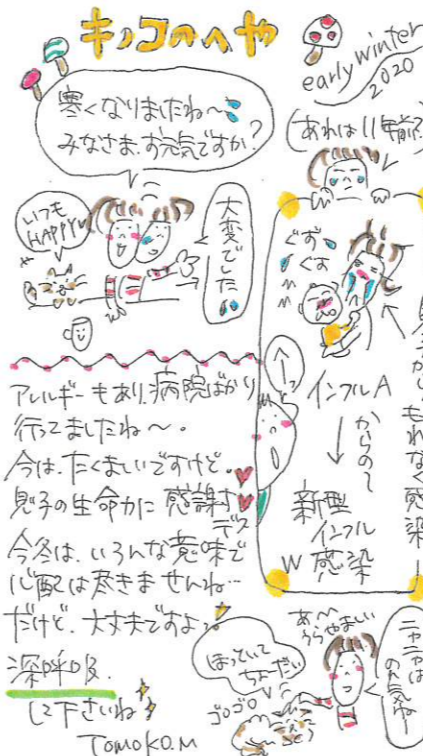 キノコのへや
early winter
2020
寒くなりましたね〜
みなさま、お元気ですか?
いつも
HAPPY
大変でした
(あれは11年前?
ぐす
ぐす
インフルA
からの〜
↓
新型
インフル
感染
W
もれなく感染
アレルギーもあり、病院ばかり
行ってましたね〜。
今は、たくましいですけど。
息子の生命力に感謝
デス
今冬は、いろんな意味で
心配は尽きませんね…
だけど、大丈夫ですよ。
深呼吸
して下さいね
Tomoko.M
あ〜
うらやましい
ニャンは
のん気ね〜
ほっといて
ちょーだい
ゴロゴロ